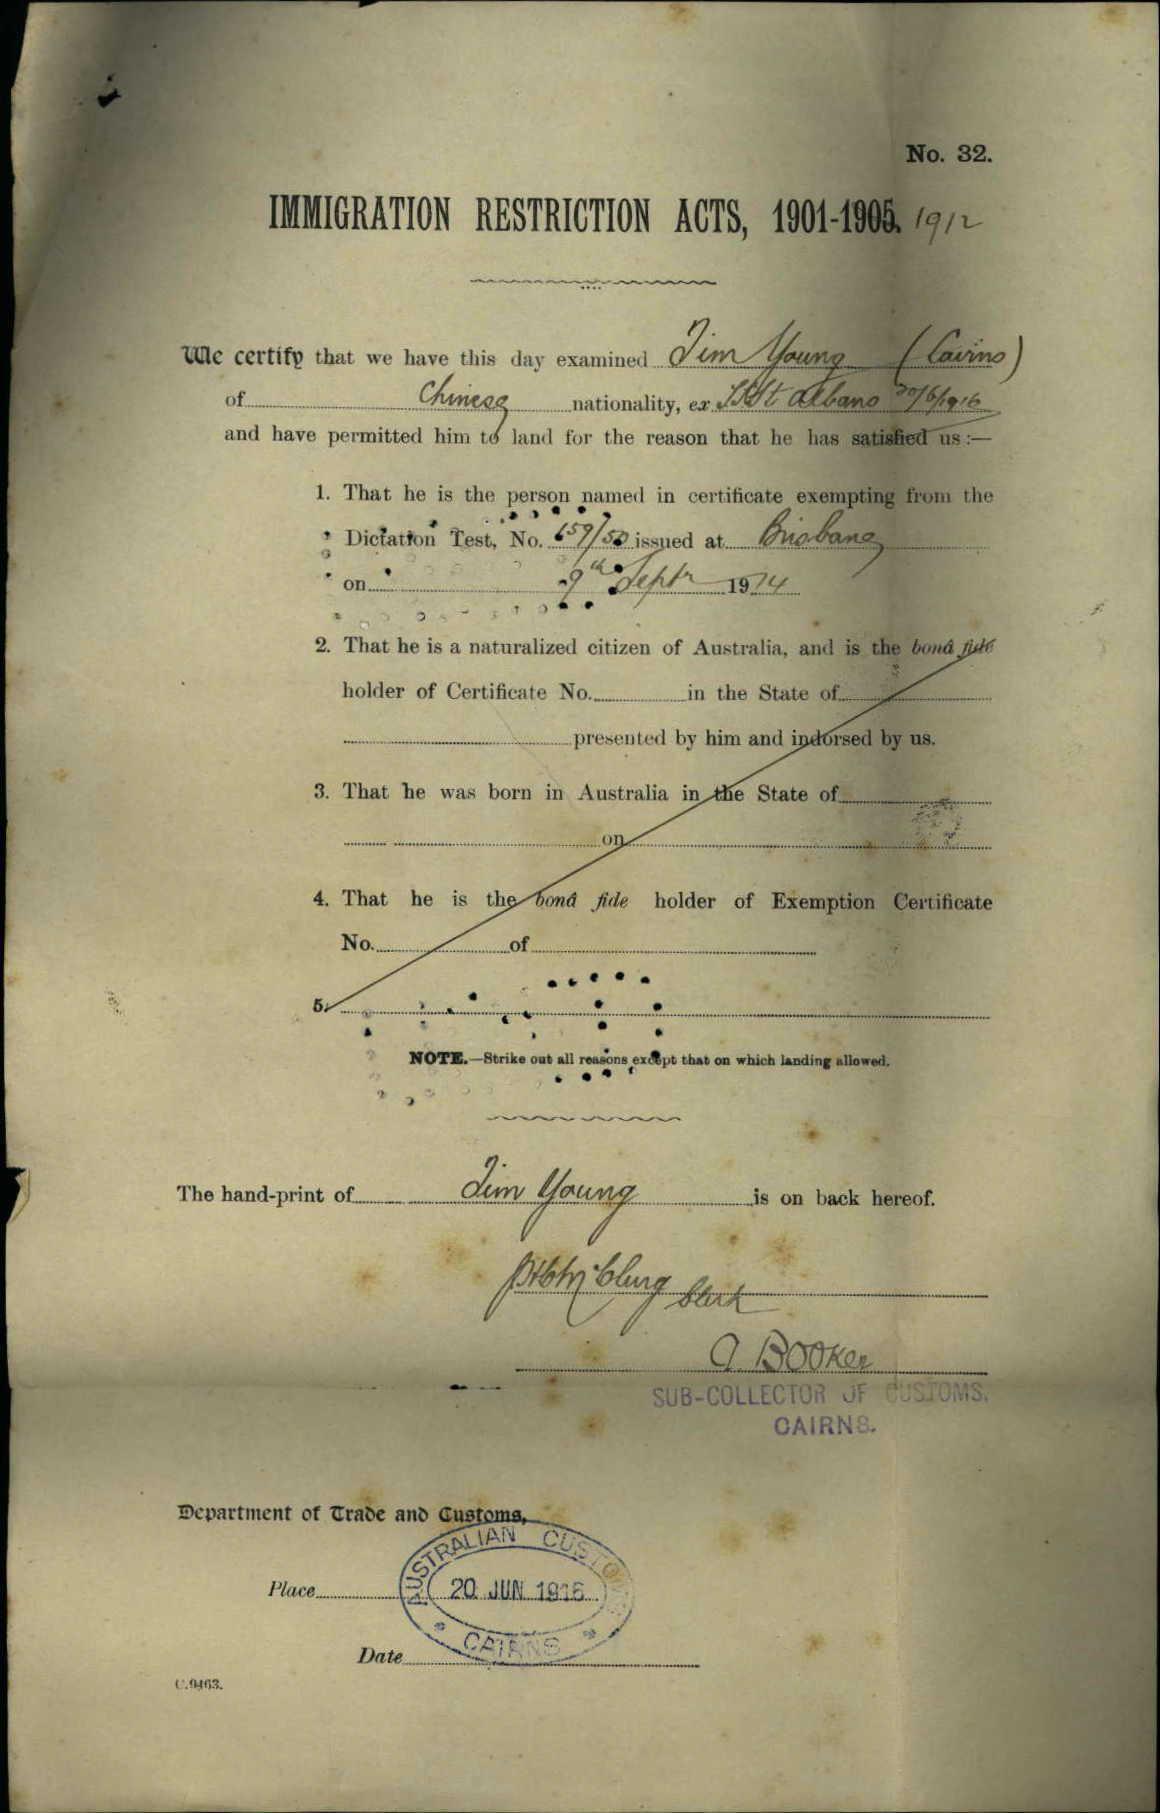 No. 32.
IMMIGRATION RESTRICTION ACTS, 1901-1905. 1912
We certify that we have this day examined Jim Young (Cairns)
of Chinese nationality, ex SS St Albans 20/6/1916
and have permitted him to land for the reason that he has satisfied us :—
1. That he is the person named in certificate exempting from the
Dictation Test, No. 159/50 issued at Brisbane
on 9th Septr 1914
2. That he is a naturalized citizen of Australia, and is the bonâ fide
holder of Certificate No. in the State of
presented by him and indorsed by us.
3. That he was born in Australia in the State of
on
4. That he is the bonâ fide holder of Exemption Certificate
No. of
5.
NOTE.—Strike out all reasons except that on which landing allowed.
The hand-print of Jim Young is on back hereof.
Clerk
A Booker
SUB-COLLECTOR OF CUSTOMS.
CAIRNS.
Department of Trade and Customs,
AUSTRALIAN CUSTOMS
Place 20 JUN 1916
CAIRNS
Date
C.9463.